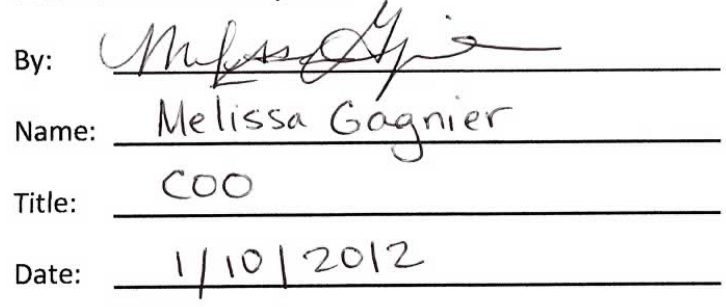 By:
Name: Melissa Gagnier
Title: COO
Date: 1/10/2012